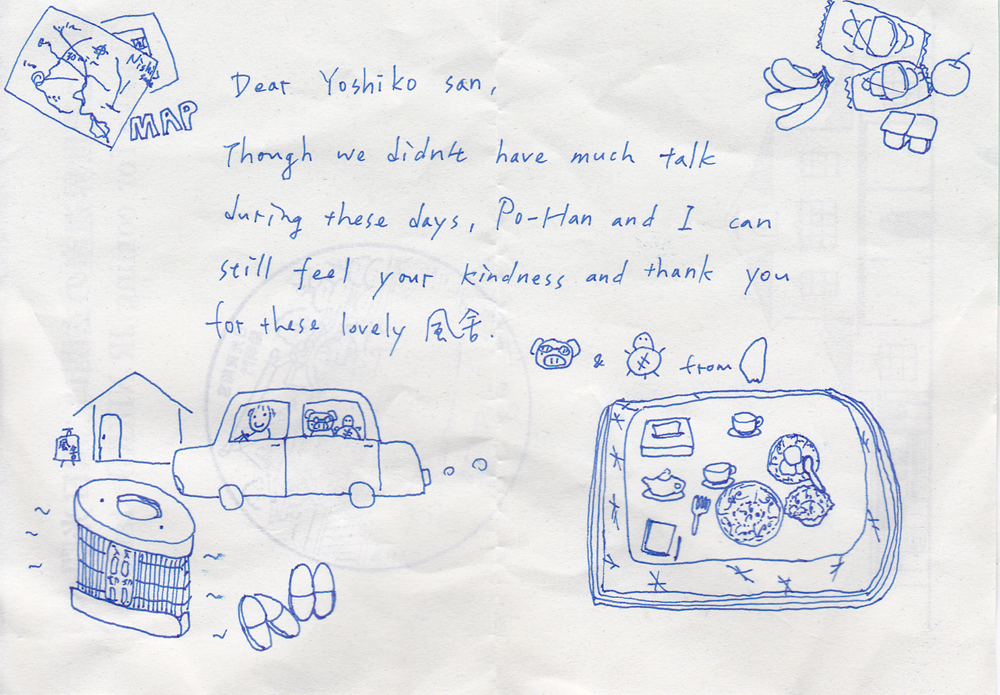 MAP
Dear Yoshiko san,
Though we didn't have much talk
during these days, Po-Han and I can
still feel your kindness and thank you
for these lovely 風舍.
& from
風舍